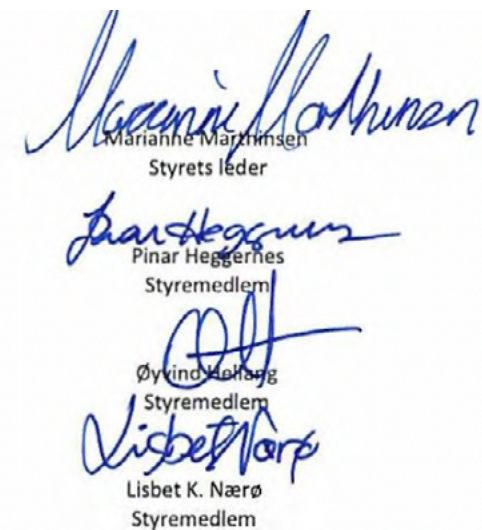 Marianne Marthinsen
Marianne Marthinsen
Styrets leder
Pinar Heggernes
Pinar Heggernes
Styremedlem
Øyvind Hellang
Styremedlem
Lisbet Nærø
Lisbet K. Nærø
Styremedlem